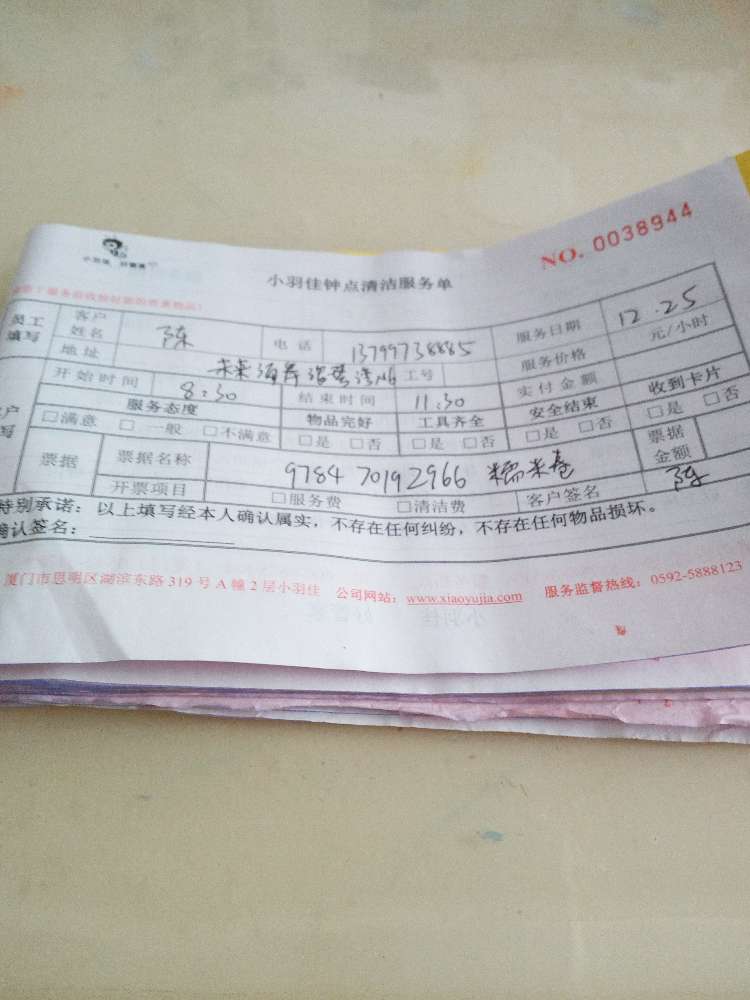 NO. 0038944
小羽佳钟点清洁服务单
员工填写 客户姓名 陈 电话 13799738885 服务日期 12.25
地址 未来海岸 工号 服务价格 元/小时
开始时间 8:30 结束时间 11:30 实付金额
服务态度 物品完好 工具齐全 安全结束 收到卡片
□满意 □一般 □不满意 □是 □否 □是 □否 □是 □否 □是 □否
票据 票据名称 9784 70192966 糯米卷 票据金额
开票项目 □服务费 □清洁费 客户签名 陈
特别承诺：以上填写经本人确认属实，不存在任何纠纷，不存在任何物品损坏。
确认签名：
厦门市思明区湖滨东路319号A幢2层小羽佳 公司网站：www.xiaoyujia.com 服务监督热线：0592-5888123